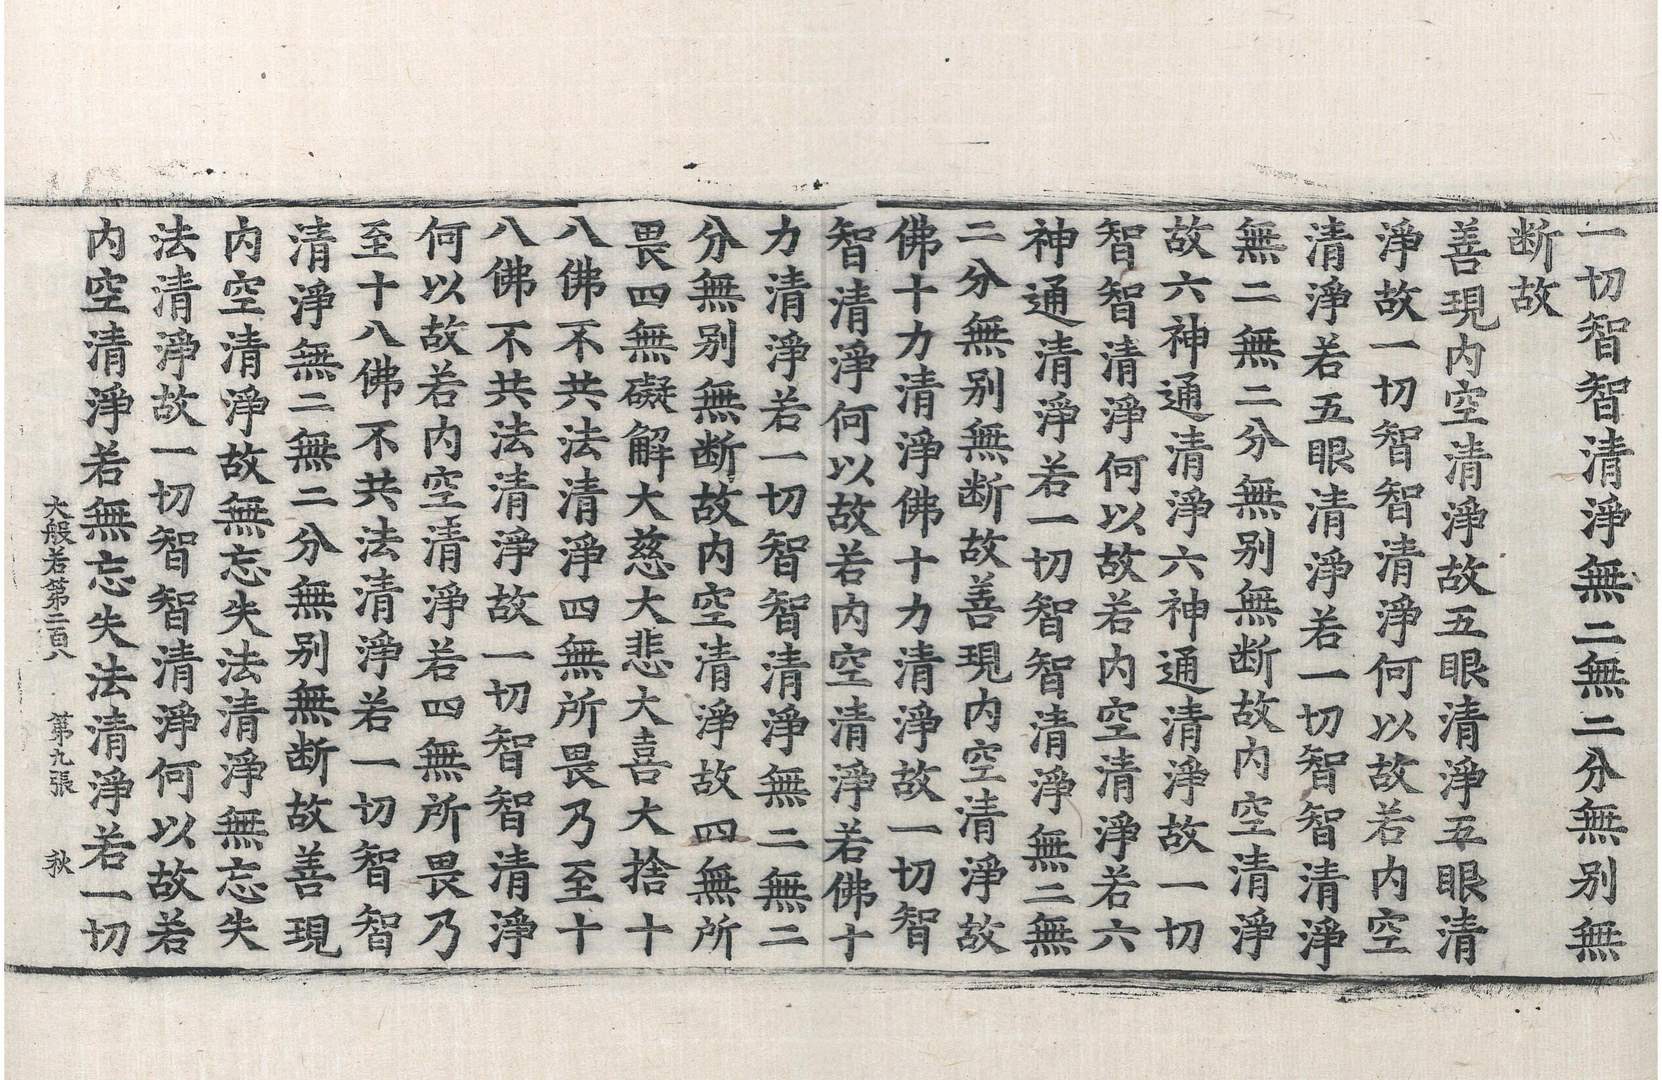 一切智智清淨無二無二分無別無
断故
善現内空清淨故五眼清淨五眼清
淨故一切智智清淨何以故若内空
清淨若五眼清淨若一切智智清淨
無二無二分無別無断故内空清淨
故六神通清淨六神通清淨故一切
智智清淨何以故若内空清淨若六
神通清淨若一切智智清淨無二無
二分無別無断故善現内空清淨故
佛十力清淨佛十力清淨故一切智
智清淨何以故若内空清淨若佛十
力清淨若一切智智清淨無二無二
分無別無断故内空清淨故四無所
畏四無礙解大慈大悲大喜大捨十
八佛不共法清淨四無所畏乃至十
八佛不共法清淨故一切智智清淨
何以故若内空清淨若四無所畏乃
至十八佛不共法清淨若一切智智
清淨無二無二分無別無断故善現
内空清淨故無忘失法清淨無忘失
法清淨故一切智智清淨何以故若
内空清淨若無忘失法清淨若一切
大般若第二百八 第九張 秋